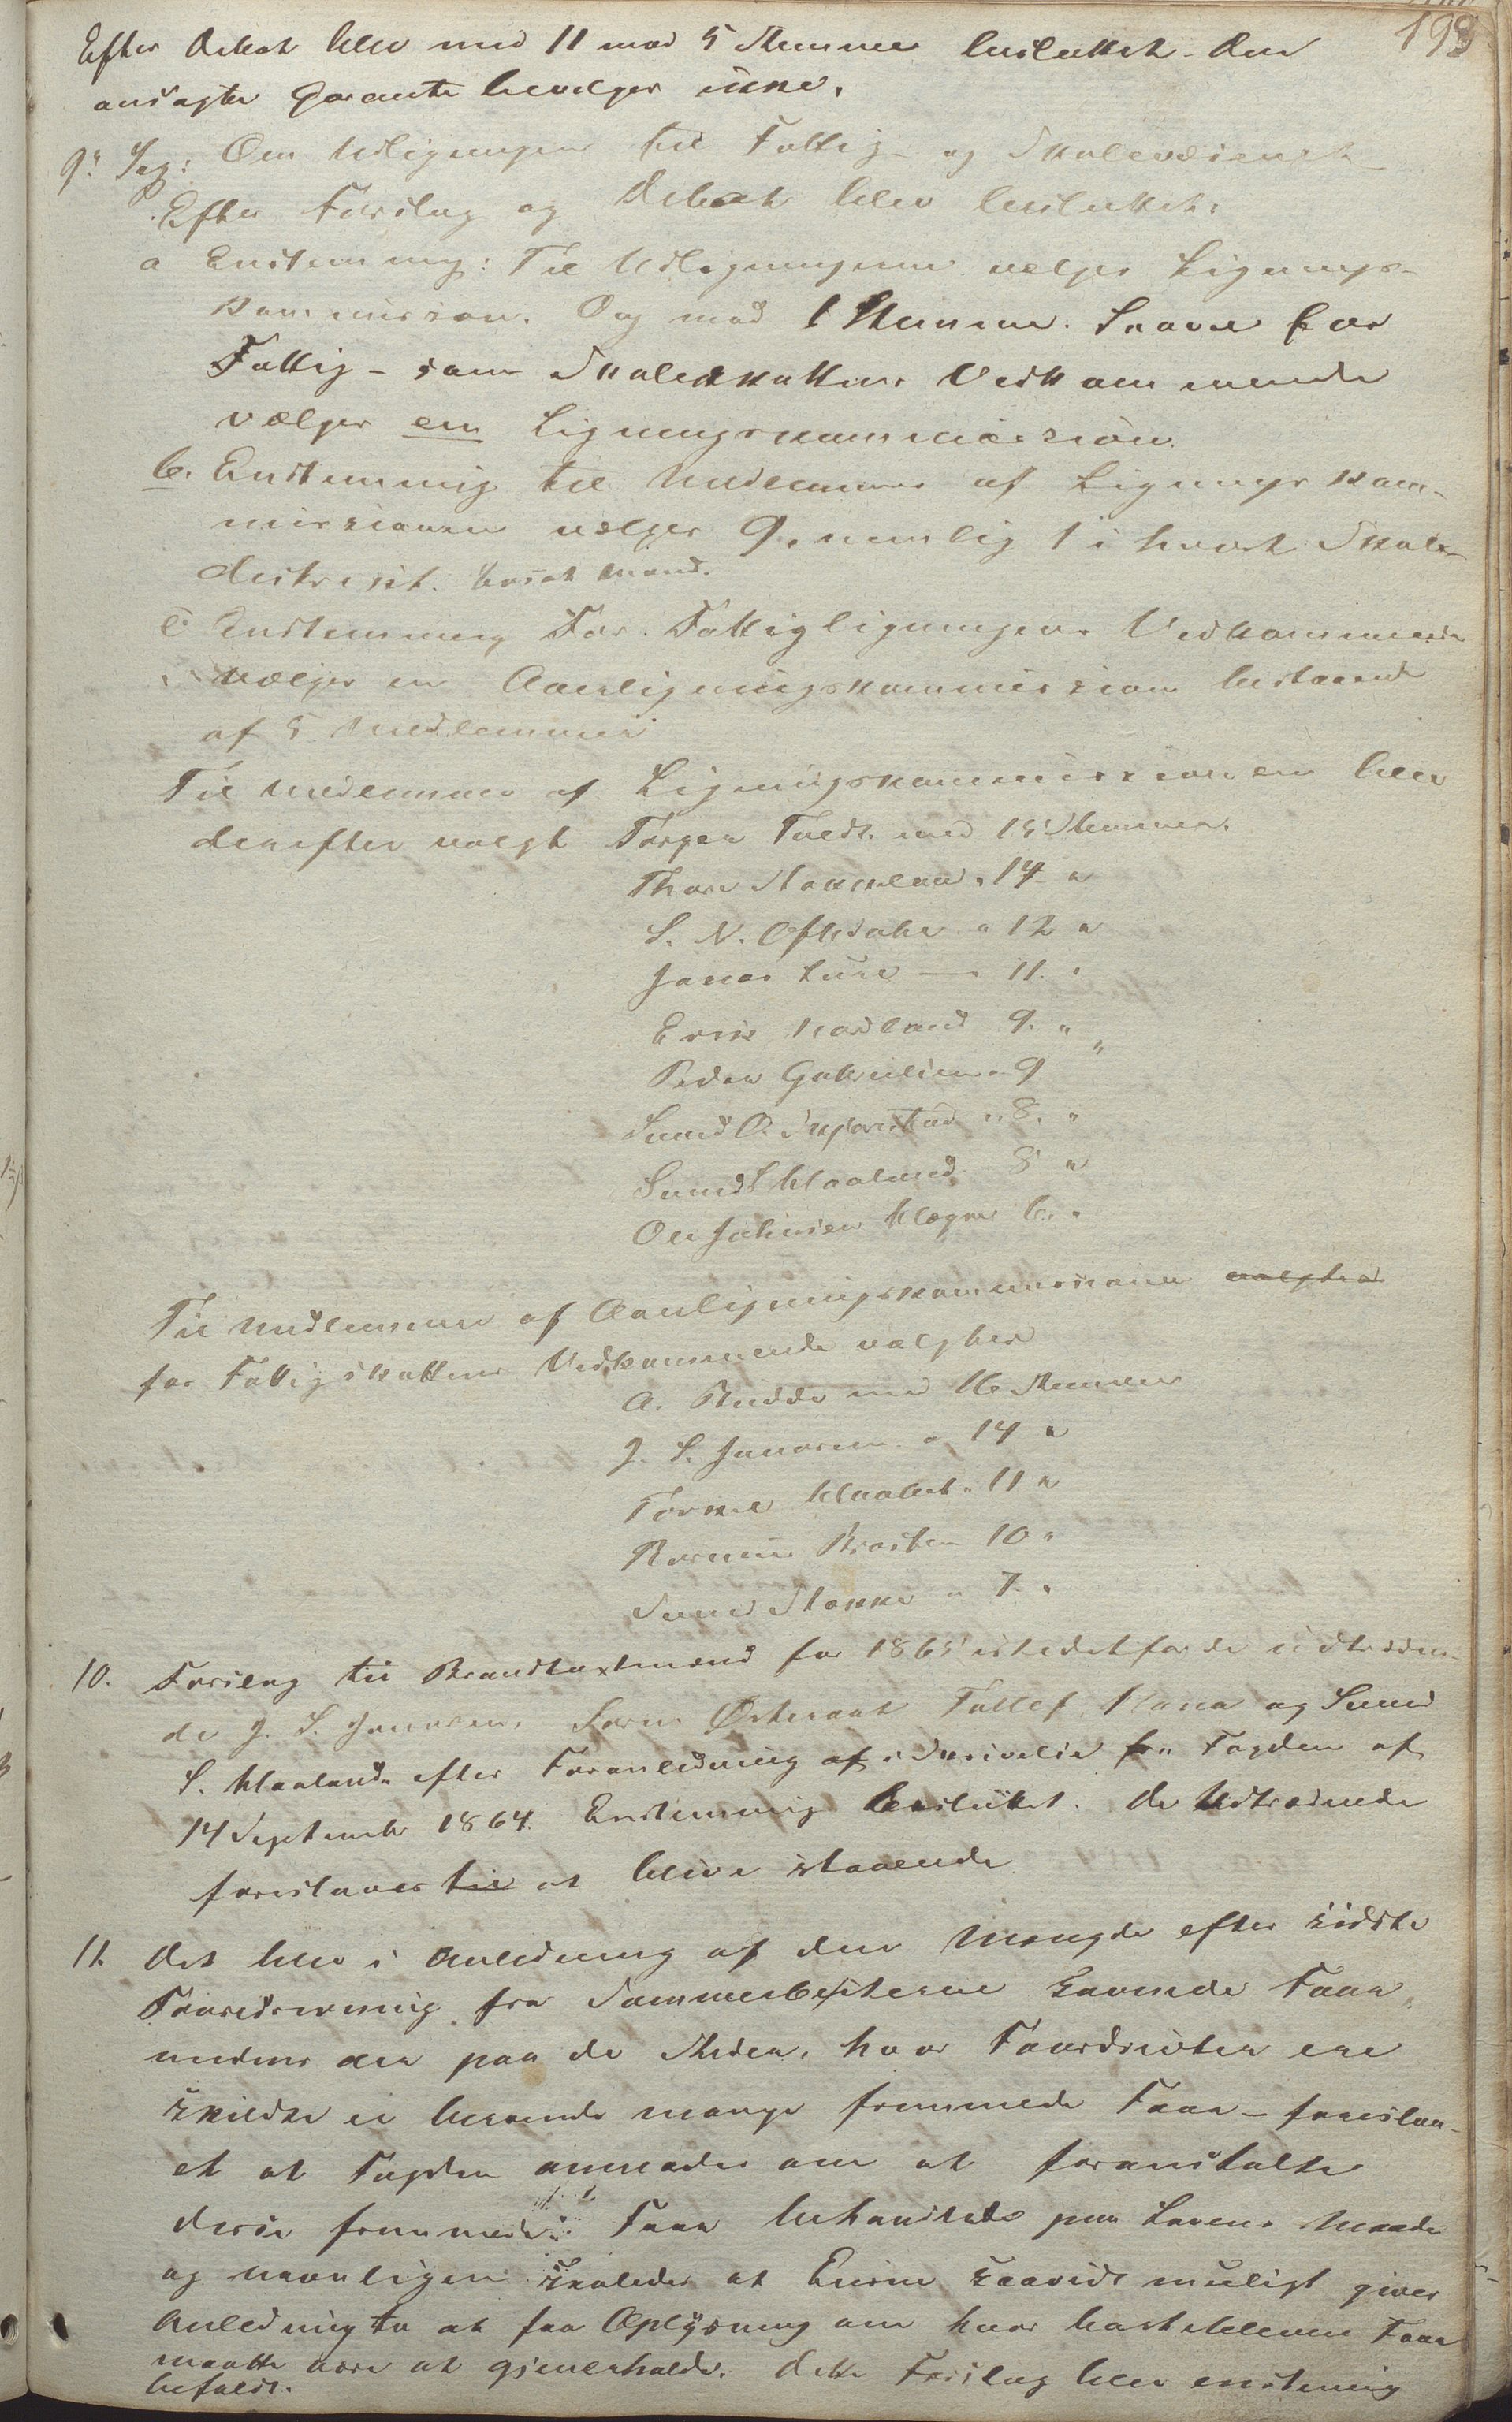 198
Efter Debat blev med 11 mod 5 Stemmer besluttet. den
ansøgte Garanti bevilges ikke.
9. Sag: Om Udligningen til Fattig- og Skolevæsenet
Efter Forslag og Debat blev besluttet:
a Enstemmig: Til Udligningerne vælges Lignings-
kommission. Og mod 1 Stemme. Saavel for
Fattig- som Skoleskattens Vedkommende
vælges en Ligningskommission.
b. Enstemmig til Medlemmer af Ligningskom-
missionen vælges 9, nemlig 1 i hvert Skole-
distrikt. bosat Mand.
c Enstemmig For Fattigligningens Vedkommende
vælges en Overligningskommission bestaaende
af 5 Medlemmer
Til Medlemmer af Ligningskommissionen blev
derefter valgt Torger Tvedt med 15 Stemmer.
Thore Stokkeland " 14 "
S. N. Oftedahl " 12 "
Jonas Lura — " 11. "
Erik Hodland 9. "
Peder Gakulien " 9 "
Svend O. " 8. "
Svend S Maaland 8 "
Ole Johnsen 6. "
Til Medlemmer af Overligningskommissionen valgtes
for Fattigskattens Vedkommende valgtes
A. Budde med 16 Stemmer
J. S. Janasen " 14 "
Torkel Maaland " 11 "
Rasmus Braaten 10 "
Svend Stokke " 7. "
10. Forslag til Brandtaxtmænd for 1865 istedetfor de udtræden-
de J. S. Janasen, Søren Østeraat Tollef Hana og Svend
S. Maaland. efter Foranledning af i Skrivelse fra Fogden af
14 September 1864. Enstemmig besluttet. De Udtrædende
foreslaaes til at blive staaende
11. Det blev i Anledning af den Mængde efter sidste
Faaredrivning fra Sommerbeiterne savnede Faar,
medens der paa de Steder, hvor Faaredrivten ere
skildte er bevende mange fremmede Faar – foreslaa-
et at Fogden anmodes om at foranstalte
disse fremmede Faar behandlede paa Lovens Maade
og navnligen saaledes at Eierne saavidt muligt gives
Anledning til at faa Oplysning om hvor bortblevne Faar
maatte være at gjenerholde. Dette Forslag blev enstemmig
bifaldt.